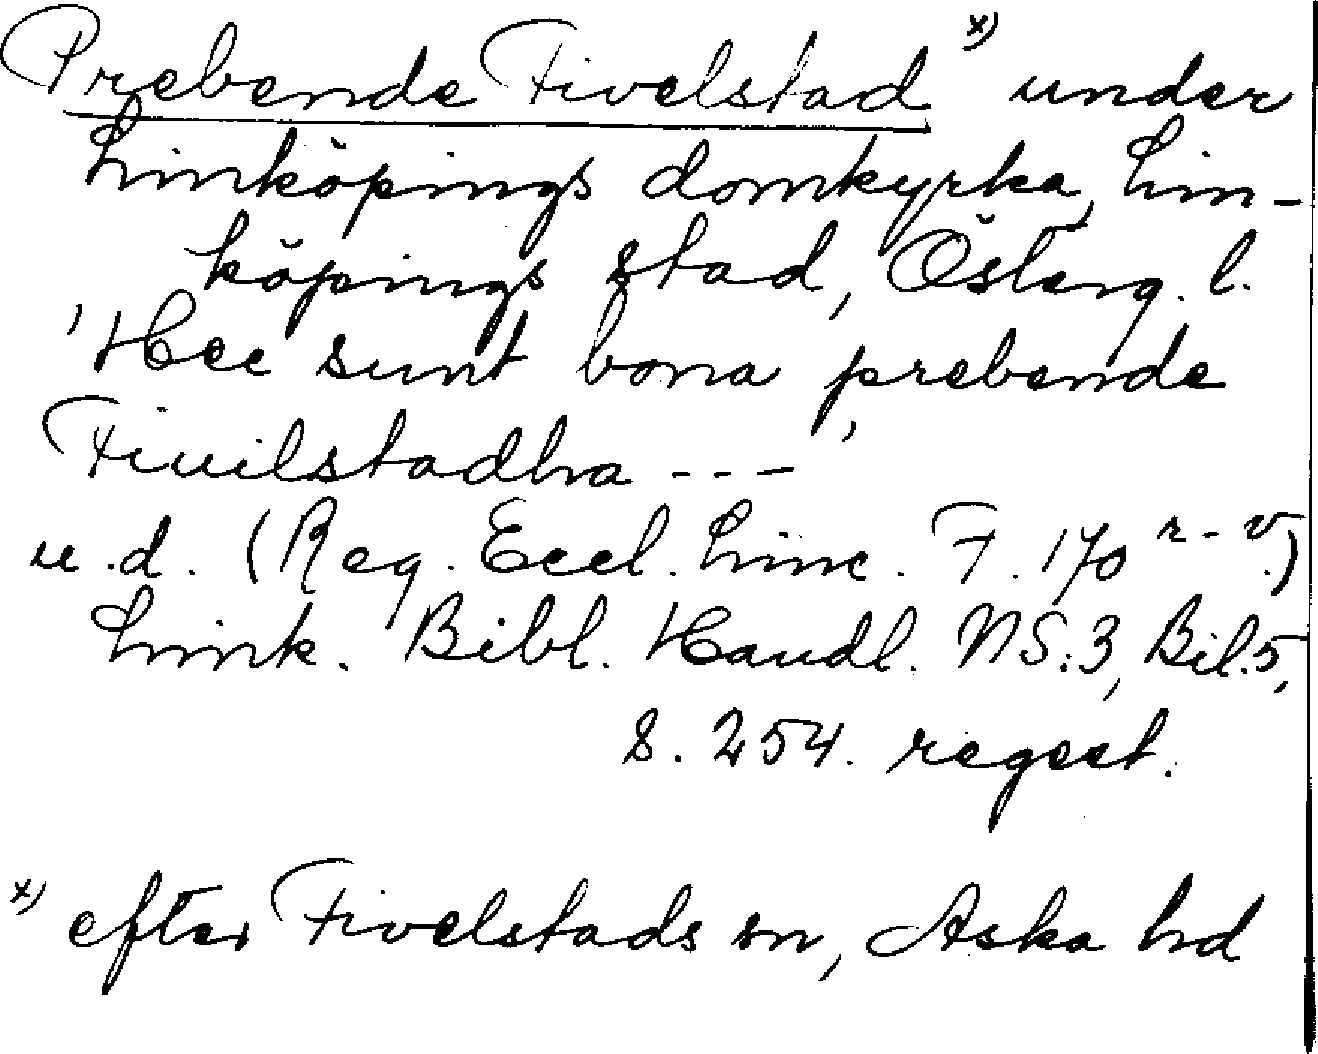 Prebende Fivelstad x) under
Linköpings domkyrka, Lin-
köpings stad, Österg. l.
'Hec sunt bona prebende
Fiuilstadha - - - '
u.d. (Reg. Eccl. Linc. F. 170 r-v.)
Link. Bibl. Handl. NS:3, Bil.5,
s. 254. regest.
x) efter Fivelstads sn, Aska hd